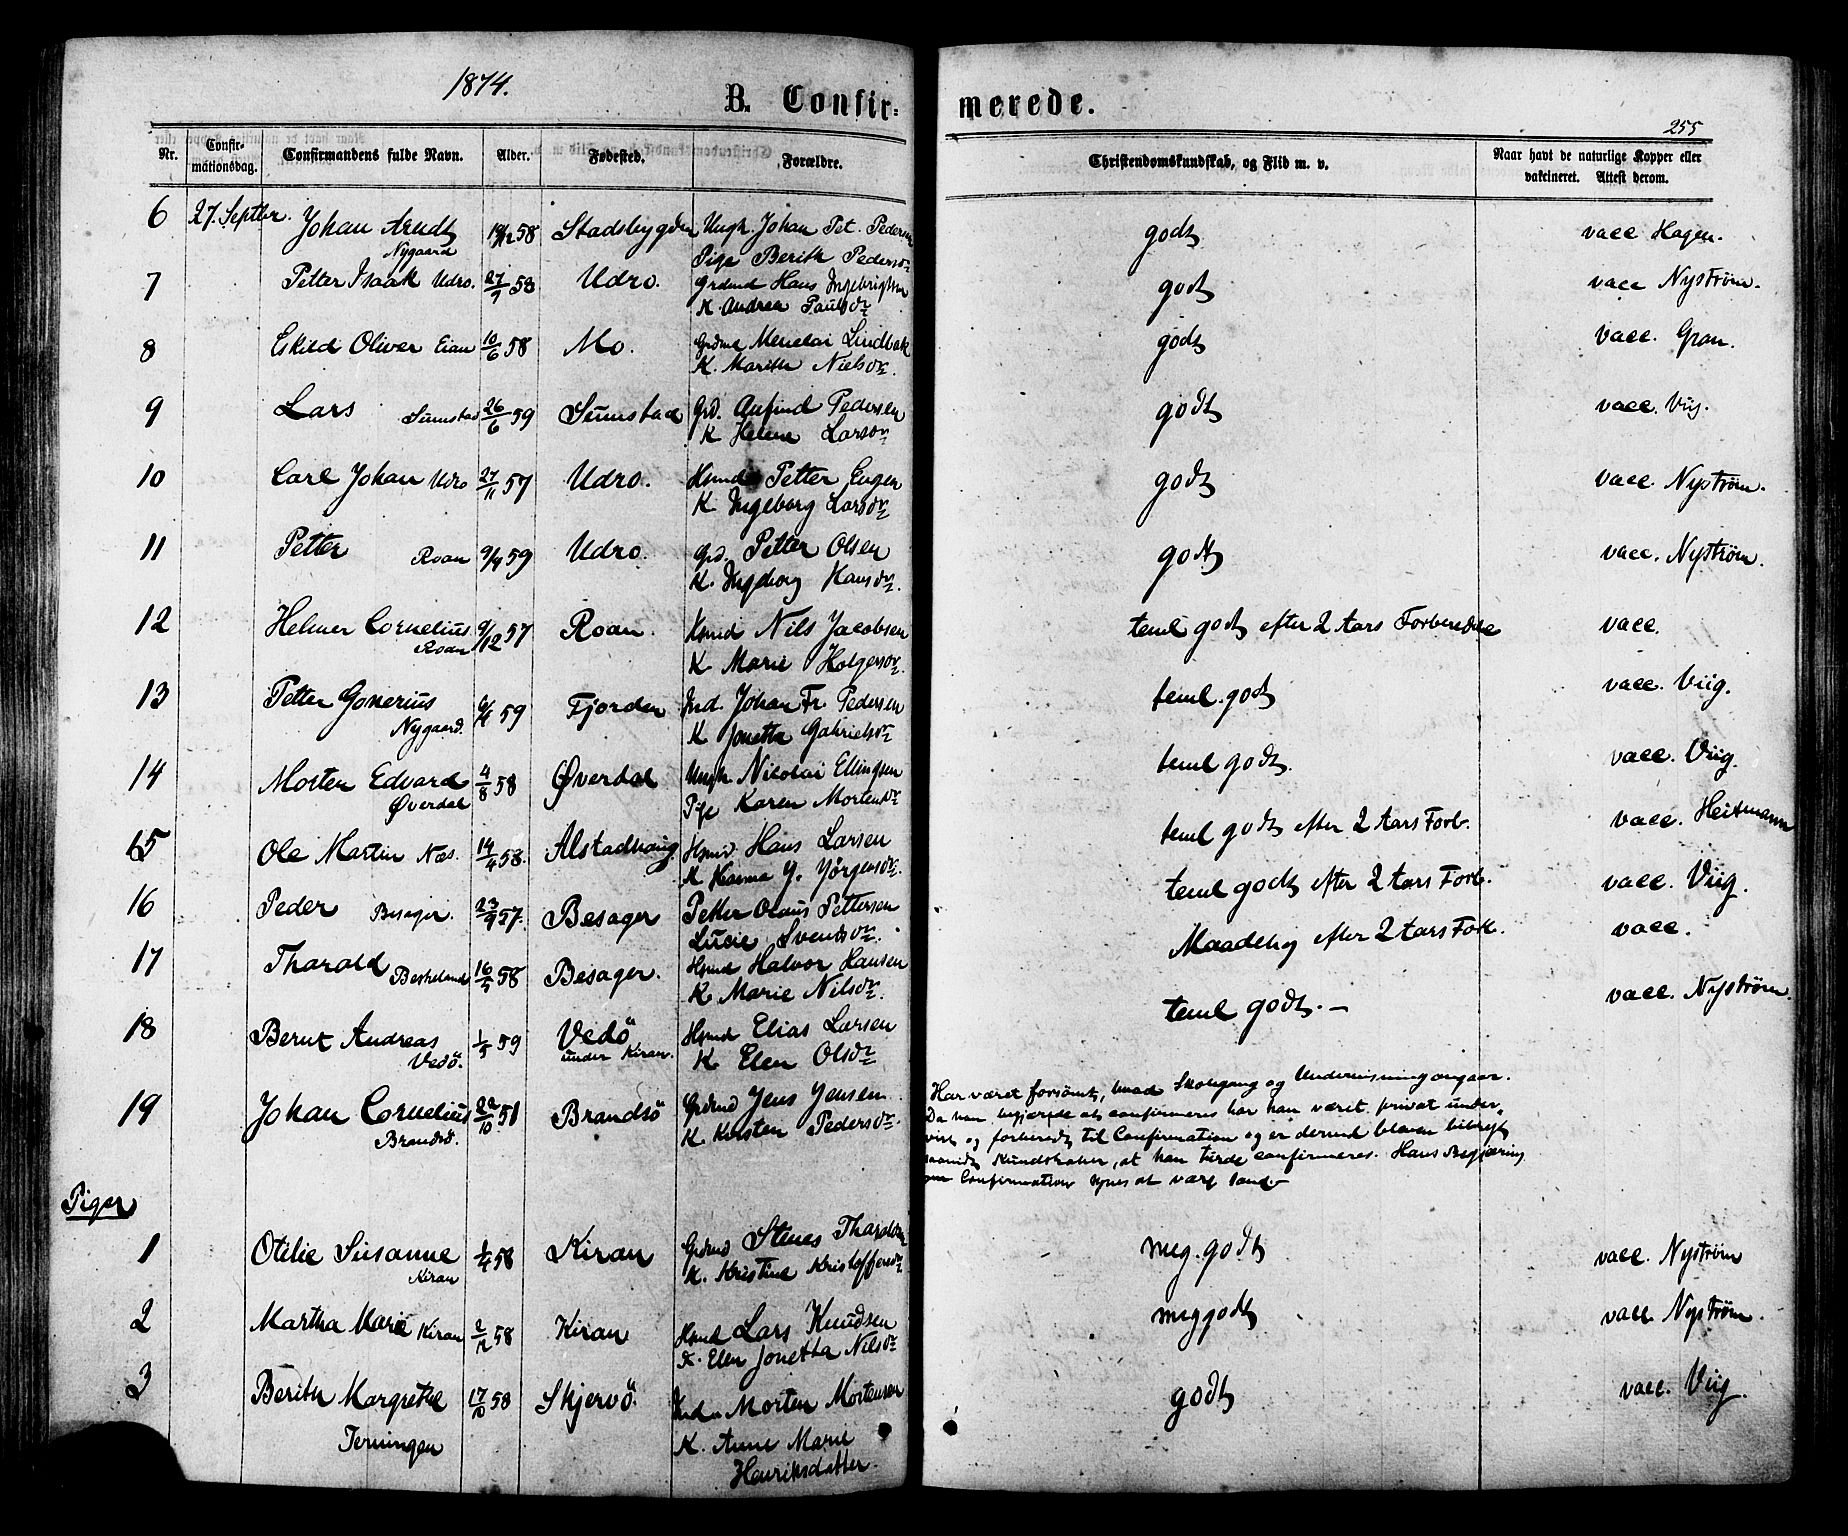 1874.
B. Confirmerede.
255
Nr. Confirmationsdag. Confirmandens fulde Navn. Alder. Fødested. Forældre. Christendomskundskab, og Flid m. v. Naar havt de naturlige Kopper eller vakcineret. Attest derom.
6 27. Septbr. Johan Arndt Nygaard 58 Stadsbygden Ungk. Johan Pet. Pedersen
Pige Berith Pedersdr godt vacc Hagen.
7 Petter Isaak Udro. 27/7 58 Udro. Grdmd Hans Ingebrigtsen
K Andrea Paulsdr godt vacc Nystrøm.
8 Eskild Oliver Eian 10/6 58 Mo. Grdmd Menelai Lindbak
K. Marith Nielsdr. godt vacc. Gran.
9 Lars Sumstad 26/6 59 Sumstad Grd. Anfind Pedersen
K Helene Larsdr godt vacc. Viig.
10 Carl Johan Udro 27/11 57 Udro. Hsmd Petter Eugen
K Ingeborg Larsdr godt vacc. Nystrøm.
11 Petter Roan 9/4 59 Udro. Grd. Petter Olsen
K. Ingeborg Hansdr. godt vacc. Nystrøm.
12 Helmer Cornelius Roan 9/12 57 Roan. Hsmd Nils Jacobsen
K Marie Holgersdr. teml godt efter 2 Aars Forberedelse vacc.
13 Petter Gonerius Nygaard. 59 Fjorden Ind. Johan Fr. Pedersen
K Jonetta Gabrielsdr teml. godt vacc. Viig.
14 Morten Edvard Øverdal 4/8 58 Øverdal Ungk. Nicolai Ellingsen
Pige Karen Mortensdr teml godt. vacc. Viig.
15 Ole Martin Næs. 14/4 58. Alstadhaug Hsmd Hans Larsen
K Hanna J. Jørgensdr. teml godt efter 2 Aars Forb. vacc. Heitmann
16 Peder Besager. 23/9 57. Besager Petter Olaus Pettersen
Lucie Svendsdr. teml godt efter 2 Aars Forb. vacc. Viig.
17 Tharald Beskeland 16/5 58 Besager. Hsmd Halvor Hansen
K. Marie Nilsdr. Maadelig efter 2 Aars Forb. vacc.
18 Bernt Andreas Vedö. 1/5 59 Vedö under Kiran. Hsmd Elias Larsen
K Elen Olsdr teml godt. — vacc. Nystrøm.
19 Johan Cornelius Brandsö. 22/10 51 Brandsö Grdmd Jens Jensen
K Kirsten Pedersdr.
Har været forsømt, hvad Skolegang og Undervisning angaar.
Da han begjærede at confirmeres har han været privat under-
vist og forberedt til Confirmation og er derved bleven bibragt
saamidt Kundskaber, at han turde confirmeres. Hans Begjæring
om Confirmation synes at være sand.
Piger
1 Otilie Susanne Kiran 1/4 58 Kiran Grdmd Stenes Tharaldsen
K. Kristine Kristoffersdr meg. godt vacc. Nystrøm
2 Martha Marie Kiran 2/12 58 Kiran Hsmd Lars Knudsen
K. Elen Jonetta Nilsdr meg godt vacc Nystrøm.
3 Berith Margrethe 17/10 58 Skjervö. Morten Mortensen
Terningen K. Anne Marie
Henriksdatter. godt vacc. Viig.